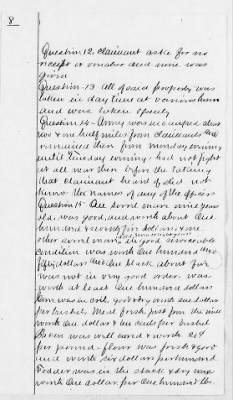 8
Question 12. Claimant asks for no
receipt or voucher and none was
given
Question 13 All of said property was
taken in day time at various hours
and were taken openly
Question 14 Army was encamped about
two & one half miles from claimants and
remained there from Monday evening
until Tuesday evening, had not fought
at all near there before the taking
that claimant heard of, did not
know the names of any of the officers
Question 15 One sorrel mare nine years
old, was good, and worth about One
hundred & seventy five dollars, one
other sorrel mare in good serviceable
condition was worth One hundred and
fifty dollars One black about five
was not in very good order was
worth at least One hundred dollars
Corn was in crib, good & dry worth one dollar
per bushel Meal fresh just from the mill
worth One dollar & ten cents per bushel
Bacon was well cured & worth 20¢
per pound flour was fresh & good
and worth six dollars per hundred
Fodder was in the stack & dry was
worth One dollar per One hundred lbs.